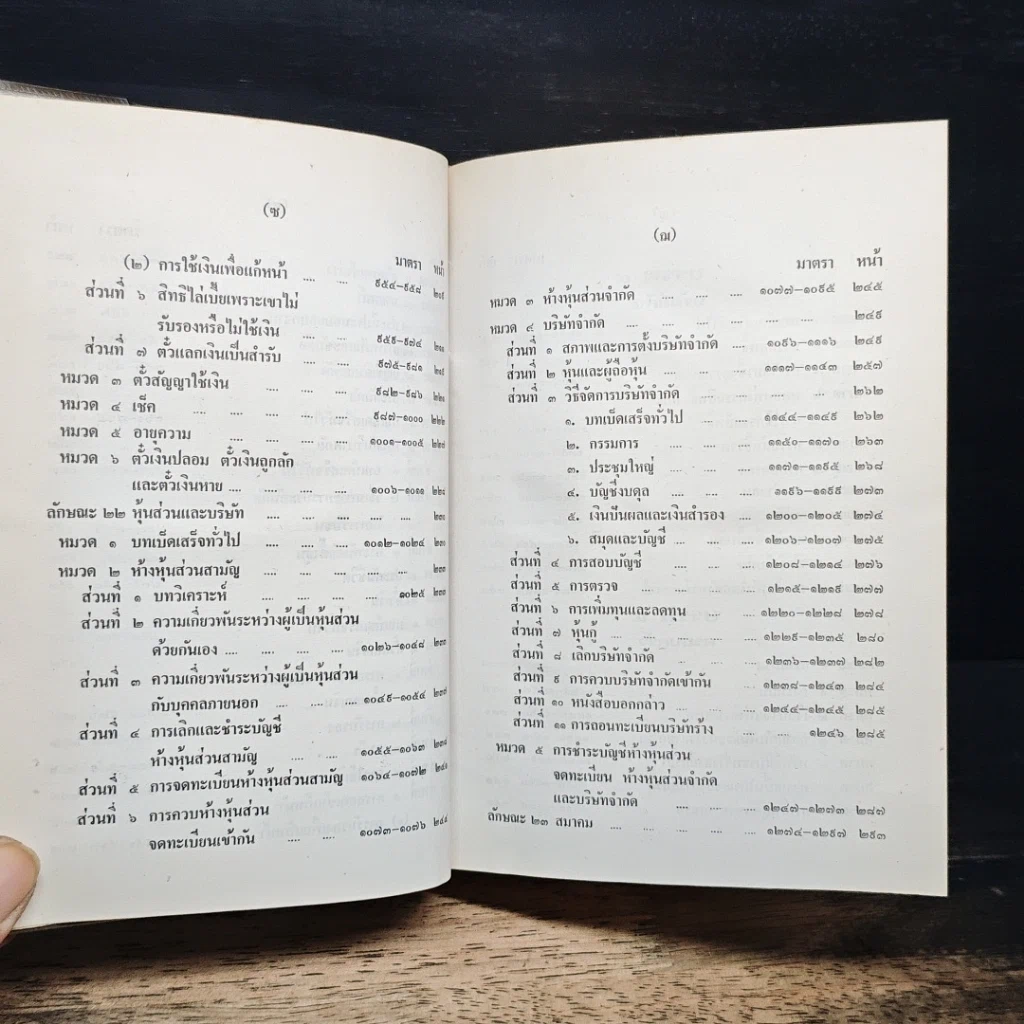 (ซ)
มาตรา หน้า
(๒) การใช้เงินเพื่อแก้หน้า .... .... ๙๕๔–๙๕๘
ส่วนที่ ๖ สิทธิไล่เบี้ยเพราะเขาไม่
รับรองหรือไม่ใช้เงิน .... .... ๙๕๙–๙๗๔
ส่วนที่ ๗ ตั๋วแลกเงินเป็นสำรับ .... .... ๙๗๕–๙๘๑
หมวด ๓ ตั๋วสัญญาใช้เงิน .... .... .... ๙๘๒–๙๘๖
หมวด ๔ เช็ค .... .... .... .... .... ๙๘๗–๑๐๐๐ ๒๒๒
หมวด ๕ อายุความ .... .... .... .... ๑๐๐๑–๑๐๐๕
หมวด ๖ ตั๋วเงินปลอม ตั๋วเงินถูกลัก
และตั๋วเงินหาย .... .... .... .... ๑๐๐๖–๑๐๑๑
ลักษณะ ๒๒ หุ้นส่วนและบริษัท .... .... .... .... ....
หมวด ๑ บทเบ็ดเสร็จทั่วไป .... .... .... ๑๐๑๒–๑๐๒๔
หมวด ๒ ห้างหุ้นส่วนสามัญ .... .... .... ....
ส่วนที่ ๑ บทวิเคราะห์ .... .... .... .... ๑๐๒๕
ส่วนที่ ๒ ความเกี่ยวพันระหว่างผู้เป็นหุ้นส่วน
ด้วยกันเอง .... .... .... .... ๑๐๒๖–๑๐๔๘
ส่วนที่ ๓ ความเกี่ยวพันระหว่างผู้เป็นหุ้นส่วน
กับบุคคลภายนอก .... .... .... ๑๐๔๙–๑๐๕๔
ส่วนที่ ๔ การเลิกและชำระบัญชี
ห้างหุ้นส่วนสามัญ .... .... .... ๑๐๕๕–๑๐๖๓
ส่วนที่ ๕ การจดทะเบียนห้างหุ้นส่วนสามัญ ๑๐๖๔–๑๐๗๒
ส่วนที่ ๖ การควบห้างหุ้นส่วน
จดทะเบียนเข้ากัน .... .... ๑๐๗๓–๑๐๗๖ ๒๔๔
(ฌ)
มาตรา หน้า
หมวด ๓ ห้างหุ้นส่วนจำกัด .... .... .... ๑๐๗๗–๑๐๙๕ ๒๔๕
หมวด ๔ บริษัทจำกัด .... .... .... .... .... ๒๔๙
ส่วนที่ ๑ สภาพและการตั้งบริษัทจำกัด .... ๑๐๙๖–๑๑๑๖ ๒๔๙
ส่วนที่ ๒ หุ้นและผู้ถือหุ้น .... .... .... ๑๑๑๗–๑๑๔๓ ๒๕๗
ส่วนที่ ๓ วิธีจัดการบริษัทจำกัด .... .... .... .... ๒๖๒
๑. บทเบ็ดเสร็จทั่วไป .... .... ๑๑๔๔–๑๑๔๙ ๒๖๒
๒. กรรมการ .... .... .... ๑๑๕๐–๑๑๗๐ ๒๖๓
๓. ประชุมใหญ่ .... .... .... ๑๑๗๑–๑๑๙๕ ๒๖๘
๔. บัญชีงบดุล .... .... .... ๑๑๙๖–๑๑๙๙ ๒๗๓
๕. เงินปันผลและเงินสำรอง .... ๑๒๐๐–๑๒๐๕ ๒๗๔
๖. สมุดและบัญชี .... .... .... ๑๒๐๖–๑๒๐๗ ๒๗๕
ส่วนที่ ๔ การสอบบัญชี .... .... .... ๑๒๐๘–๑๒๑๔ ๒๗๖
ส่วนที่ ๕ การตรวจ .... .... .... .... ๑๒๑๕–๑๒๑๙ ๒๗๗
ส่วนที่ ๖ การเพิ่มทุนและลดทุน .... .... ๑๒๒๐–๑๒๒๘ ๒๗๘
ส่วนที่ ๗ หุ้นกู้ .... .... .... .... ๑๒๒๙–๑๒๓๕ ๒๘๐
ส่วนที่ ๘ เลิกบริษัทจำกัด .... .... .... ๑๒๓๖–๑๒๓๗ ๒๘๒
ส่วนที่ ๙ การควบบริษัทจำกัดเข้ากัน .... ๑๒๓๘–๑๒๔๓ ๒๘๔
ส่วนที่ ๑๐ หนังสือบอกกล่าว .... .... .... ๑๒๔๔–๑๒๔๕ ๒๘๕
ส่วนที่ ๑๑ การถอนทะเบียนบริษัทร้าง .... .... ๑๒๔๖ ๒๘๕
หมวด ๕ การชำระบัญชีห้างหุ้นส่วน
จดทะเบียน ห้างหุ้นส่วนจำกัด
และบริษัทจำกัด .... .... .... ๑๒๔๗–๑๒๗๓ ๒๘๗
ลักษณะ ๒๓ สมาคม .... .... .... .... .... ๑๒๗๔–๑๒๙๗ ๒๙๓